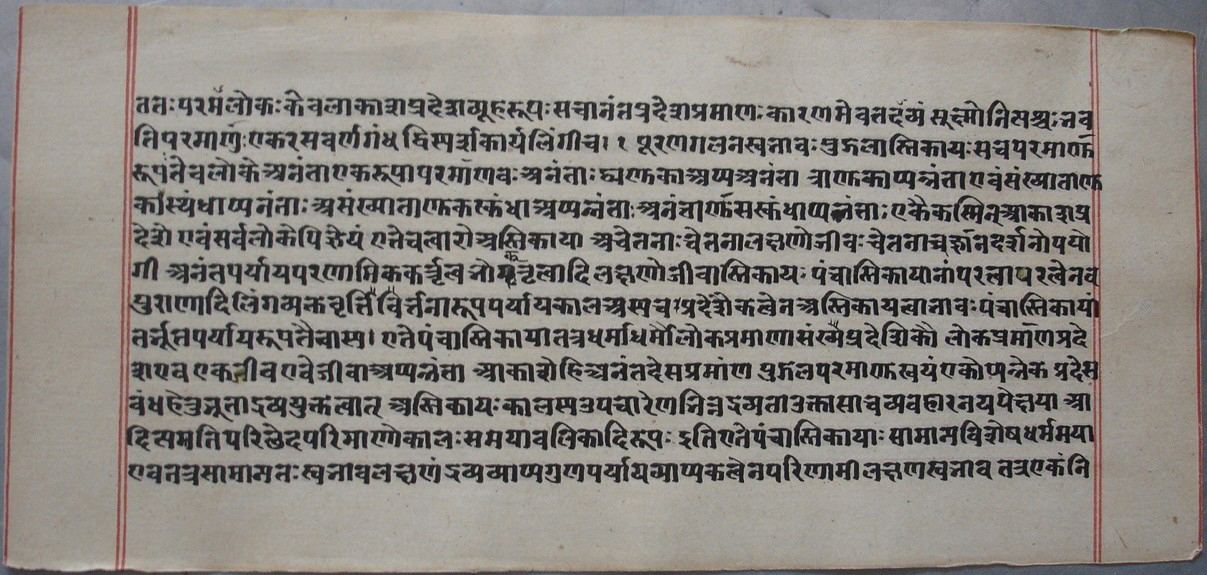 ततः परमलोकः केवलाकाशप्रदेशव्यूहरूपः सचानंतप्रदेशप्रमाणः कारणमेवतदंत्यं सूक्ष्मोनित्यश्चः भव
तिपरमाणुः एकरसवर्णगंध द्विस्पर्शः कार्यलिंगीच। १ पूरणगलनस्वभावः पुद्गलास्तिकायः सचपरमाणु
रूपंतेचलोकेअनंताएकरूपापरमाणवः अनंताः द्व्यणुकाअप्यअनंता त्र्यणुकाप्यनंताएवंसंख्याताणु
कास्यंधाप्यनंताः असंख्याताणुकस्कंधाअप्यनंताः अनंताणुकस्कंधाप्यनंताः एकैकस्मिनआकाशप्र
देशे एवंसर्वलोकेपिज्ञेयं एतेचत्वारोअस्तिकाया अचेतनाः चेतनालक्षणोजीवः चेतनाचज्ञानदर्शनोपयो
गी अनंतपर्यायपरणामिककर्तृत्वभोक्तृत्वादिलक्षणोजीवास्तिकायः पंचास्तिकायानांपरत्वापरत्वेनव
पुराणादिलिंगव्यक्तवृत्तिवर्तनारूपपर्यायकालअस्यच प्रदेशैकत्वेनअस्तिकायत्वाभावः पंचास्तिकायां
तर्भूतपर्यायरूपतैवास्य। एतेपंचास्तिकायातत्रधर्माधर्मौलोकप्रमाणासंख्येप्रदेशिकौ लोकप्रमाणप्रदे
शएव एकजीव एवंजीवाअप्यनंता आकाशोहिअनंतदेसप्रमाण पुद्गलपरमाणुस्वयंएकोप्यनेक प्रदेस
बंधहेतुभूताद्रव्ययुक्तत्वात् अस्तिकायः कालस्यउपचारेणभिन्नद्रव्यताउक्तासाचव्यवहारनयपेक्षया आ
दित्यगतिपरिछेदपरिमाणोकालः समयावलिकादिरूपः इतिएतेपंचास्तिकायाः सामान्यविशेषधर्ममया
एवतत्रसामान्यतः स्वभावलक्षणंद्रव्यव्याप्यगुणपर्यायव्यापकत्वेनपरिणामीलक्षणस्वभाव तत्रएकंनि